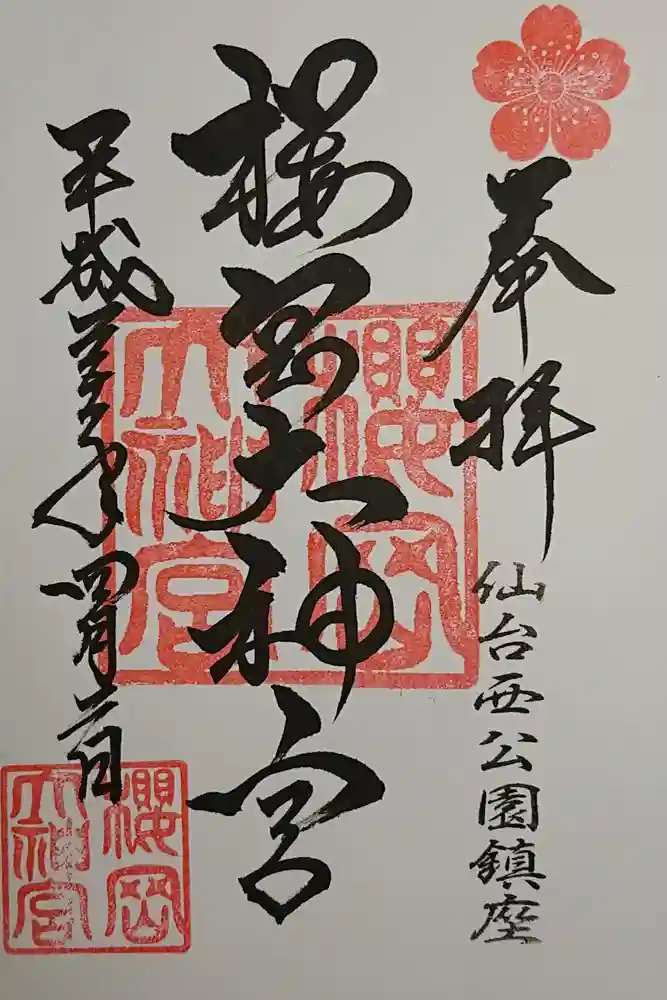 奉拝
仙台西公園鎮座
櫻岡大神宮
平成三十年四月二日
櫻岡大神宮
櫻岡大神宮